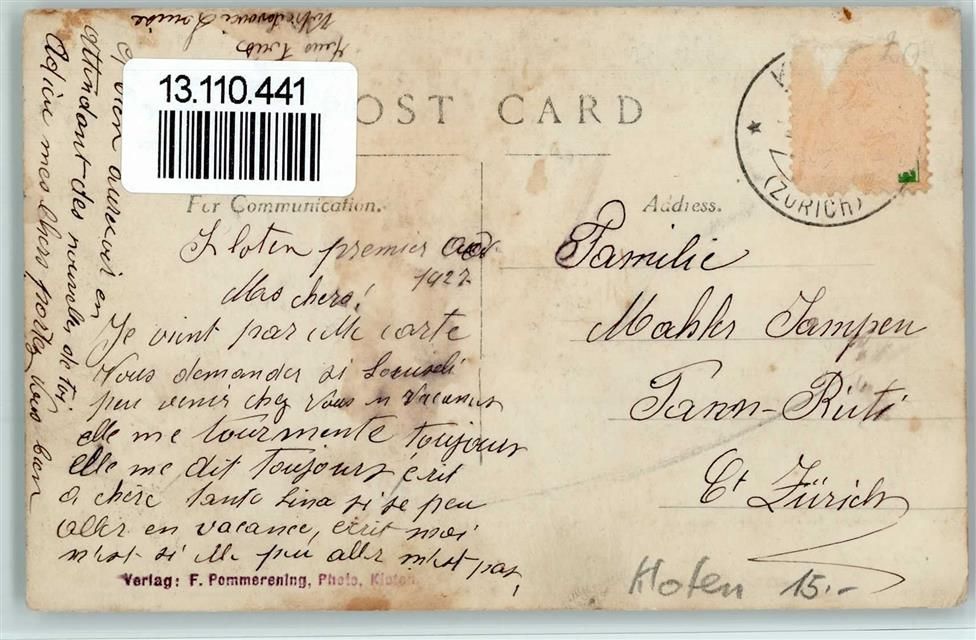 13.110.441
POST CARD
For Communication.
Address.
(ZÜRICH)
Kloten premier
1927
Mes chers!
Je vient par cette carte
Vous demander si
peu venir chez vous en vacances
elle me tourmente toujours
elle me dit toujours écrit
a chère tante Lina si je peu
aller en vacance, écrit moi
n'est si elle peu aller n'est pas,
bien aurevoir en
Attendant des nouvelles de toi
Adieu mes chers portez vous bien
Louise
Familie
Mahler Tampen
Tann-Rüti
Ct Zürich
Verlag: F. Pommerening, Photo, Kloten
Kloten 15.-